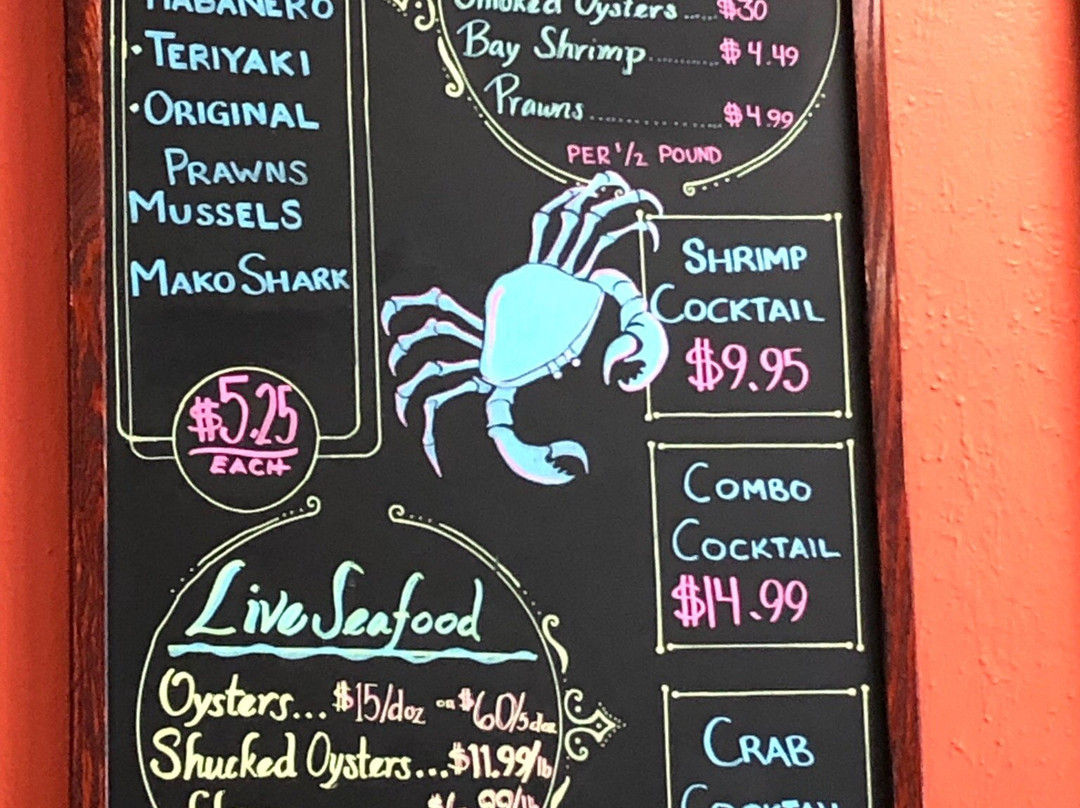 HABANERO
• TERIYAKI
• ORIGINAL
PRAWNS
MUSSELS
MAKO SHARK
$5.25
EACH
Smoked Oysters ..... $30
Bay Shrimp .......... $4.49
Prawns .............. $4.99
PER 1/2 POUND
SHRIMP
COCKTAIL
$9.95
COMBO
COCKTAIL
$14.99
CRAB
COCKTAIL
Live Seafood
Oysters... $15/doz or $60/5 doz
Shucked Oysters... $11.99/lb